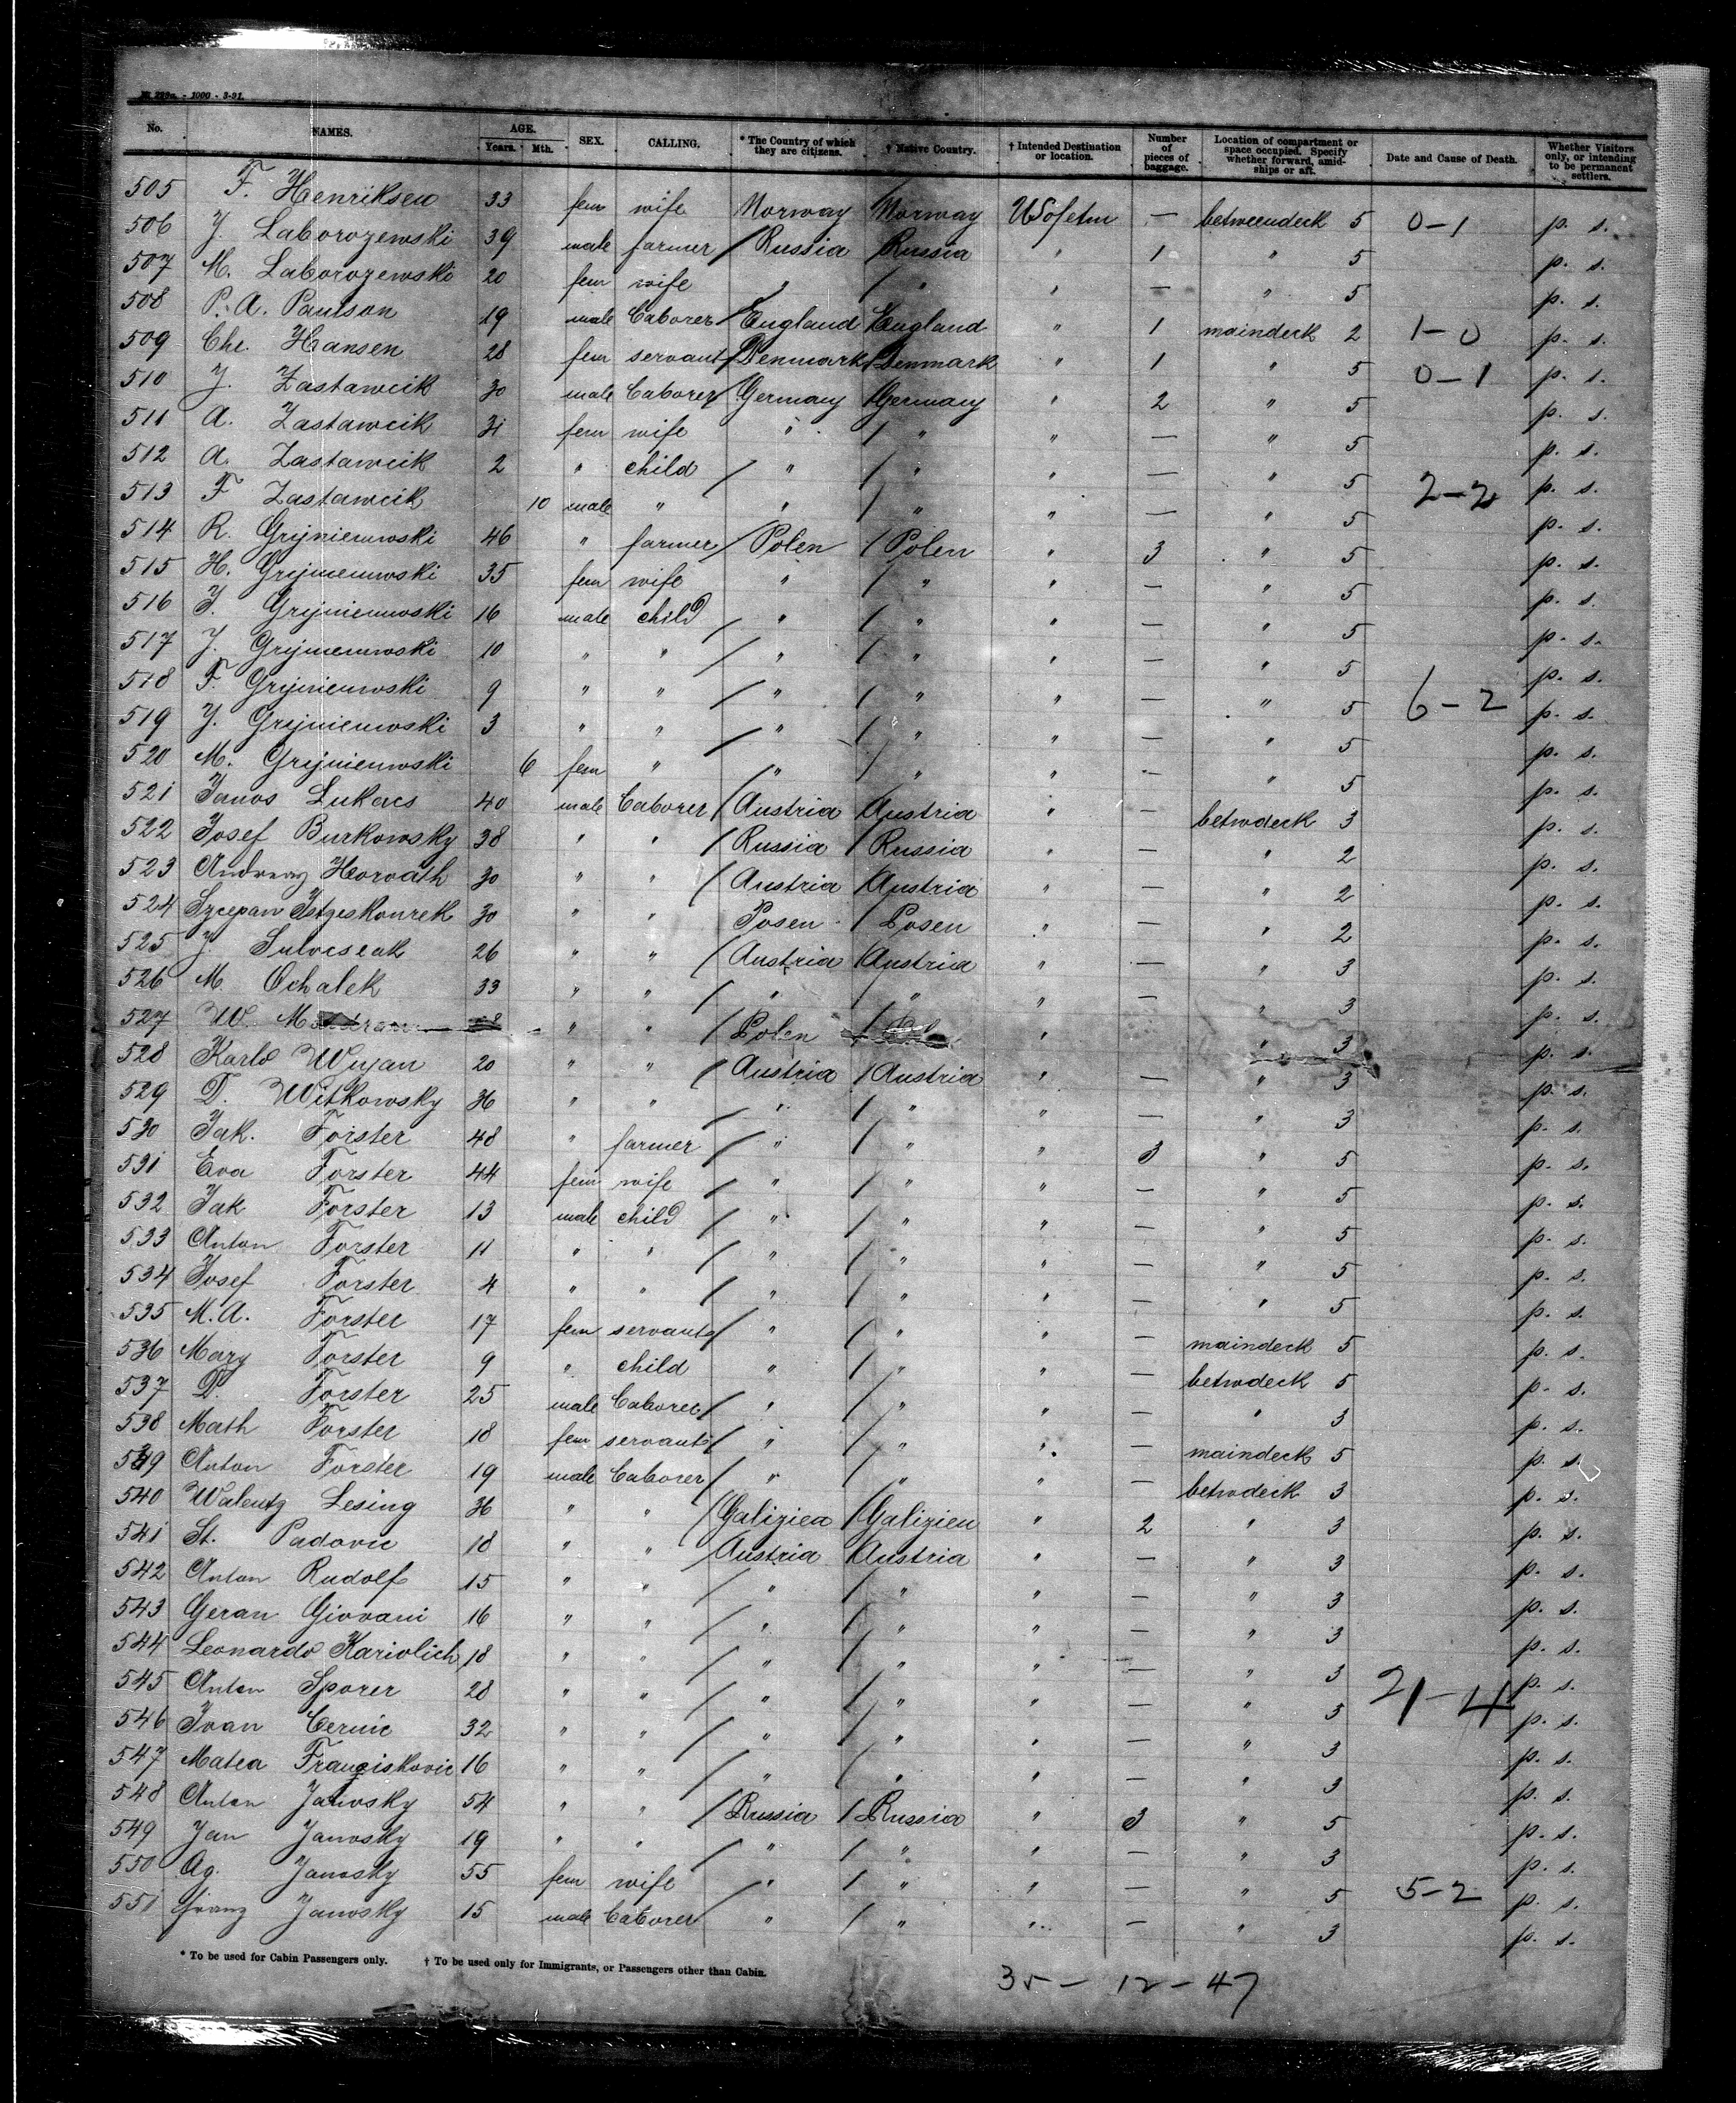 M 229a. - 1000 - 3-91.
No. NAMES. AGE. Years. Mth. SEX. CALLING. * The Country of which they are citizens. † Native Country. † Intended Destination or location. Number of pieces of baggage. Location of compartment or space occupied. Specify whether forward, amidships or aft. Date and Cause of Death. Whether Visitors only, or intending to be permanent settlers.
505 F. Henriksen 33 fem wife Norway Norway USofetm — betweendeck 5 0-1 p. s.
506 J. Laborozewski 39 male farmer / Russia / Russia " 1 " 5 p. s.
507 M. Laborozewski 20 fem wife " / " " — " 5 p. s.
508 P. A. Paulson 19 male Caborer / England / England " 1 maindeck 2 1-0 p. s.
509 Che. Hansen 28 fem servant / Denmark / Denmark " 1 " 5 0-1 p. s.
510 J. Zastawcik 30 male Caborer / Germany / Germany " 2 " 5 p. s.
511 A. Zastawcik 31 fem wife " / " " — " 5 p. s.
512 A. Zastawcik 2 " child / " / " " — " 5 p. s.
513 F Zastawcik 10 male " " / " " — " 5 2-2 p. s.
514 R. Grijnieuwski 46 " farmer / Polen / Polen " 3 " 5 p. s.
515 H. Grijnieuwski 35 fem wife " / " " — " 5 p. s.
516 J. Grijnieuwski 16 male child / " / " " — " 5 p. s.
517 J. Grijnieuwski 10 " " / " / " " — " 5 p. s.
518 F. Grijnieuwski 9 " " / " / " " — " 5 6-2 p. s.
519 J. Grijnieuwski 3 " " / " / " " — " 5 p. s.
520 M. Grijnieuwski 6 fem " / " / " " — " 5 p. s.
521 Janos Lukacs 40 male Caborer / Austria / Austria " — betwdeck 3 p. s.
522 Josef Burkowsky 38 " " / Russia / Russia " — " 2 p. s.
523 Horvath 30 " " / Austria / Austria " — " 2 p. s.
524 Szcepan 30 " " Posen / Posen " — " 2 p. s.
525 J Sulvcseak 26 " " / Austria / Austria " — " 3 p. s.
526 M. Ochalek 33 " " / " / " " — " 3 p. s.
527 W. " " / Polen " " 3 p. s.
528 Karlo Wujan 20 " " / Austria / Austria " — " 3 p. s.
529 D. Witkowsky 36 " " / " / " " — " 3 p. s.
530 Jak. Forster 48 " farmer / " / " " 3 " 5 p. s.
531 Eva Forster 44 fem wife / " / " " — " 5 p. s.
532 Jak Forster 13 male child / " / " " — " 5 p. s.
533 Anton Forster 11 " " / " / " " — " 5 p. s.
534 Josef Forster 4 " " / " / " " — " 5 p. s.
535 M. A. Forster 17 fem servant / " / " " — maindeck 5 p. s.
536 Mary Forster 9 " child " / " " — betwdeck 5 p. s.
537 D. Forster 25 male Caborer / " / " " — " 3 p. s.
538 Math Forster 18 fem servant / " / " " — maindeck 5 p. s.
539 Anton Forster 19 male Caborer / " / " " — betwdeck 3 p. s.
540 Walenty Lesing 36 " " / Galizien / Galizien " 2 " 3 p. s.
541 St. Padovic 18 " " / Austria / Austria " — " 3 p. s.
542 Anton Rudolf 15 " " / " / " " — " 3 p. s.
543 Geran Giovani 16 " " / " / " " — " 3 p. s.
544 Leonardo Kariolich 18 " " / " / " " — " 3 p. s.
545 Anton Sporer 28 " " / " / " " — " 3 21-4 p. s.
546 Ivan Cernic 32 " " / " / " " — " 3 p. s.
547 Matea Franciskovic 16 " " / " / " " — " 3 p. s.
548 Anton Janosky 54 " " / Russia / Russia " 3 " 5 p. s.
549 Jan Janosky 19 " " / " / " " — " 3 p. s.
550 Ag. Janosky 55 fem wife / " / " " — " 5 5-2 p. s.
551 Franz Janosky 15 male Caborer / " / " " — " 3 p. s.
* To be used for Cabin Passengers only. † To be used only for Immigrants, or Passengers other than Cabin.
35 - 12 - 47